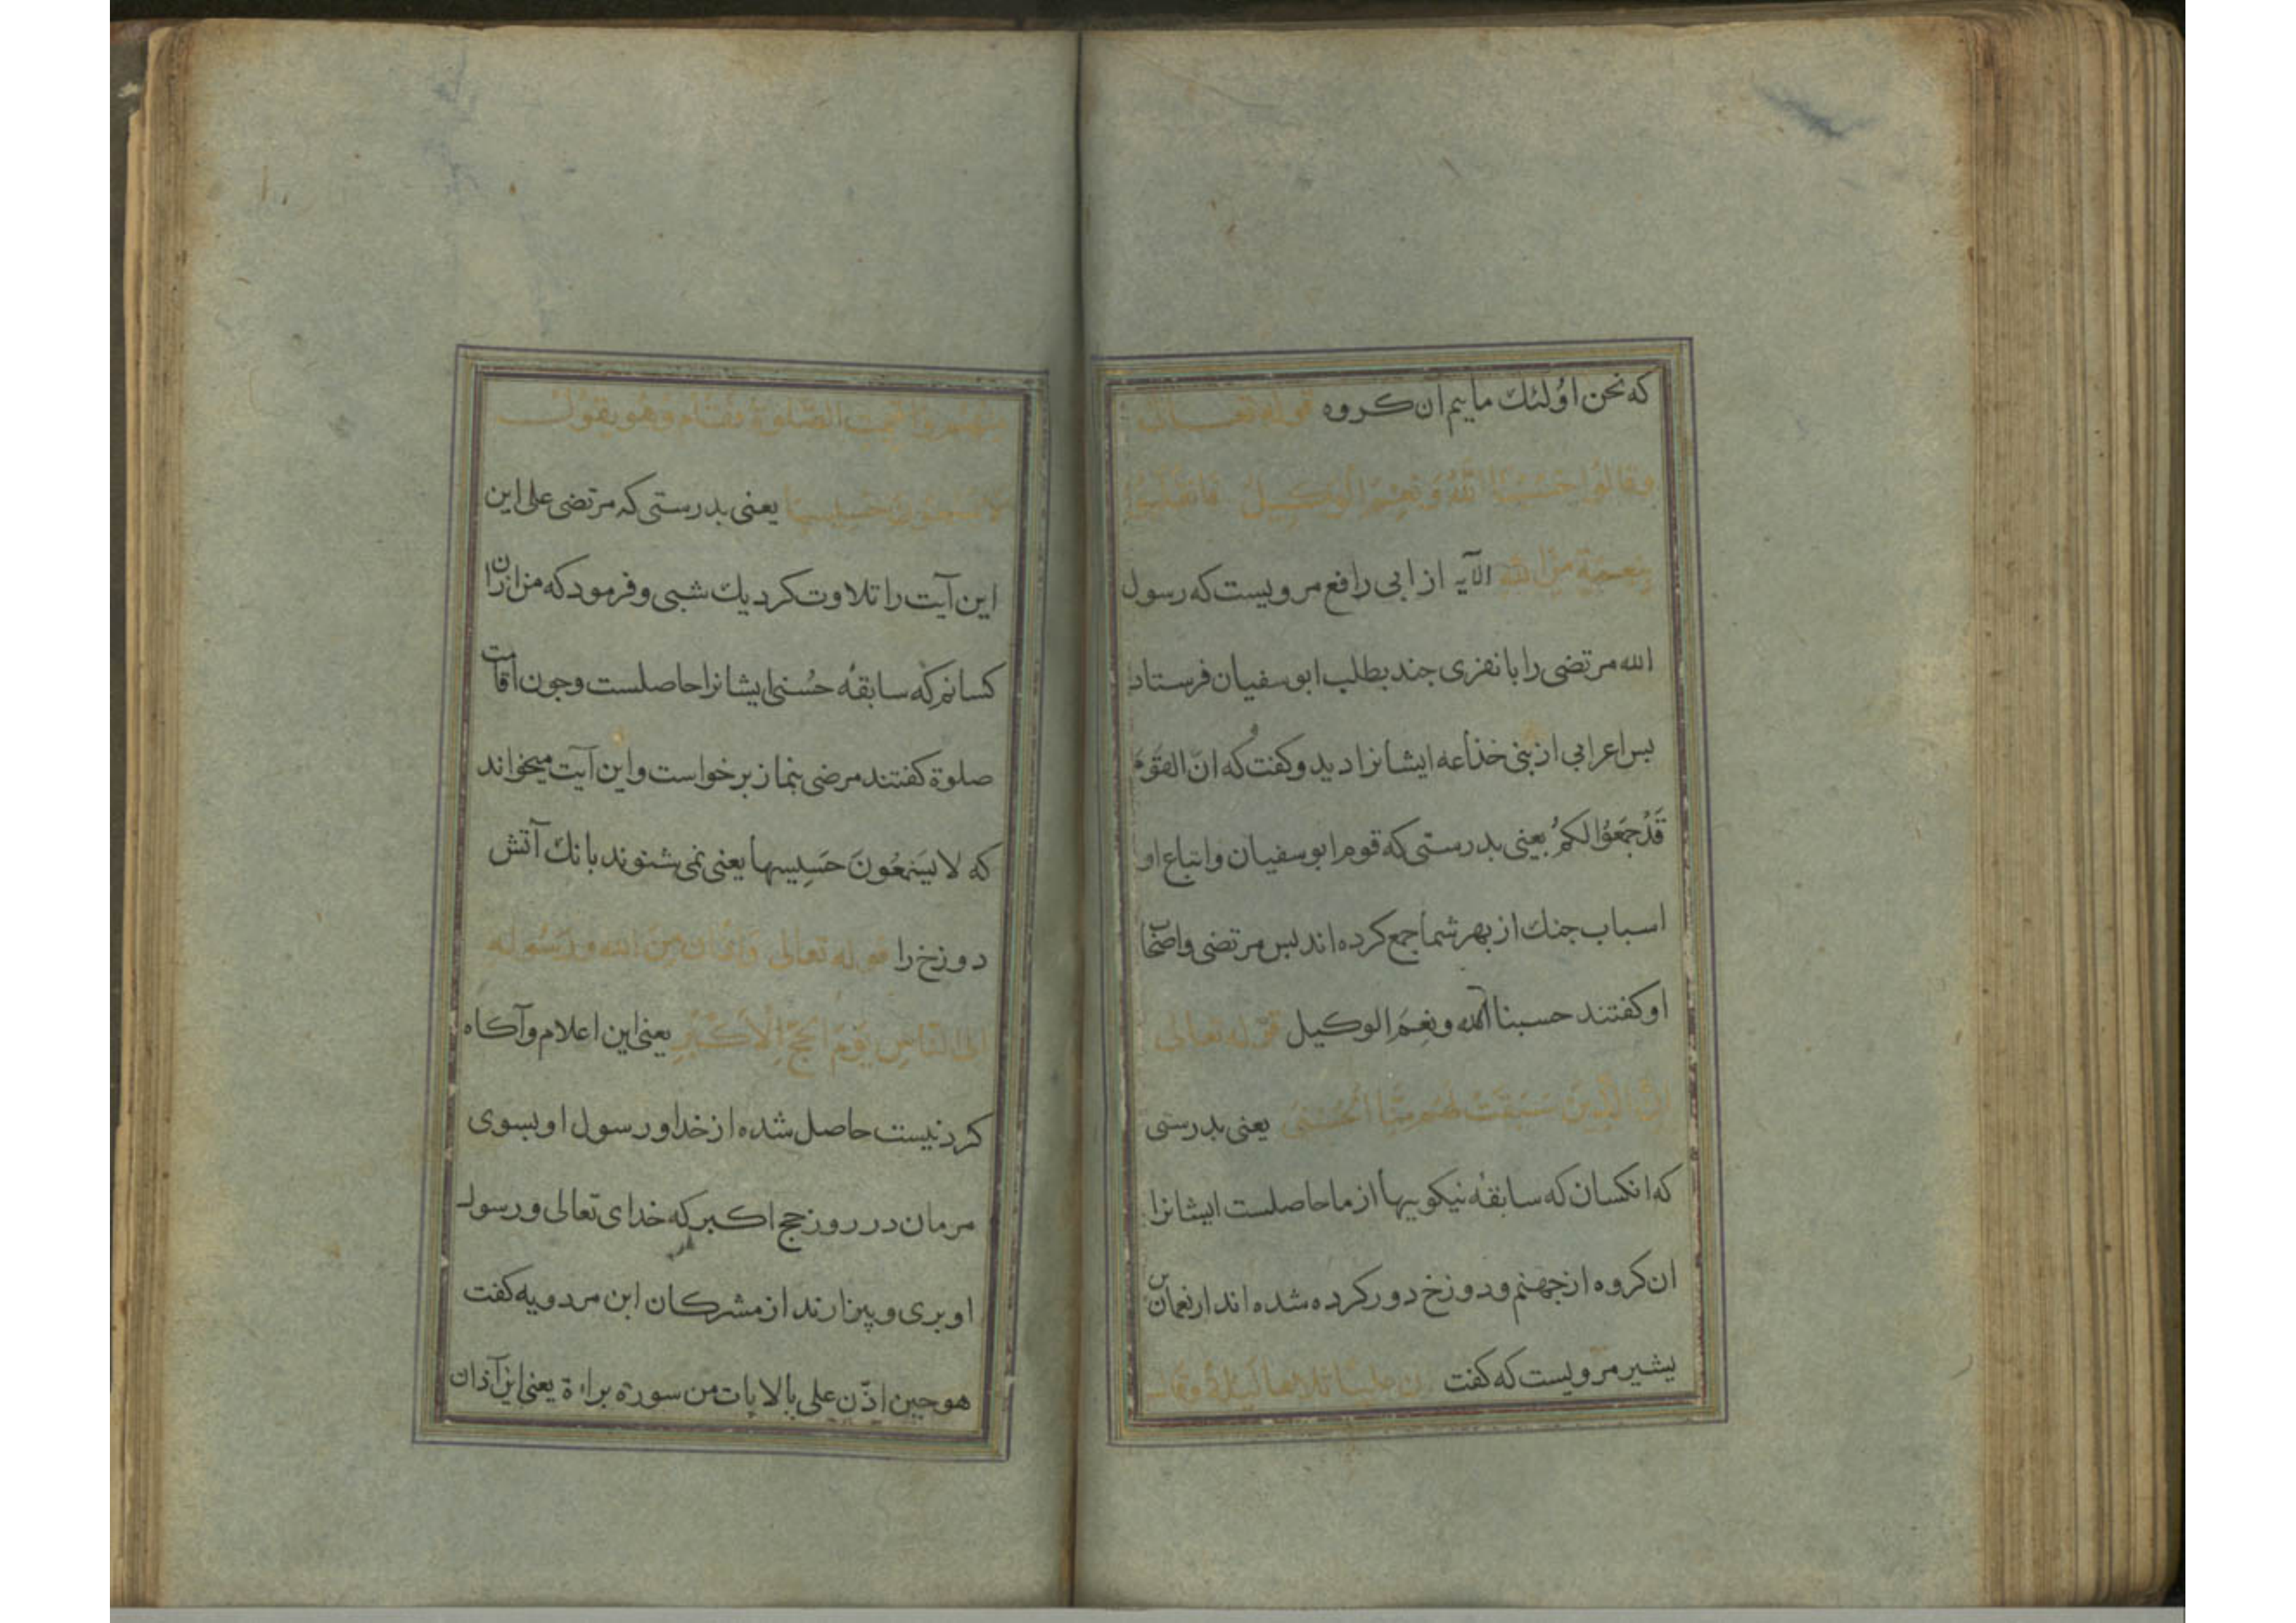 که نحن اولئك ماییم ان کروه قوله تعالی
وقالوا حَسْبُنَا اللّٰهُ وَنِعْمَ الْوَكِيلُ فَانْقَلَبُوا
بِنِعْمَةٍ مِنَ اللّٰه الآیه از ابی رافع مرویست که رسول
الله مرتضی را با نفری جند بطلب ابو سفیان فرستاد
بس اعرابی از بنی خذاعه ایشانرا دید و کفت که انّ القَومَ
قَدْ جمَعُوا لکمُ یعنی بدرستی که قوم ابو سفیان و اتباع او
اسباب جنك از بهر شما جمع کرده اند بس مرتضی و اصحاب
او کفتند حسبنا الله و نِعمَ الوکیل قوله تعالی
اِنَّ الَّذِينَ سَبَقَتْ لَهُم مِنَّا الْحُسْنَى یعنی بدرستی
که انکسان که سابقهٔ نیکوییها از ما حاصلست ایشانرا
ان کروه از جهنم و دوزخ دور کرده شده اند از نعمان بن
بشیر مرویست که کفت ان علیا تلاها لیلة وقال
منهم واقیمت الصلوة فقام وهو یقول
لا یسمعون حسیسها یعنی بدرستی که مرتضی علی این
این آیت را تلاوت کرد یك شبی و فرمود که من ازان
کسانم که سابقهٔ حُسنی ایشانرا حاصلست و جون اقامت
صلوة کفتند مرضی بنماز برخواست و این آیت میخواند
که لا یَسْمَعُونَ حَسِیسها یعنی نمی شنوند بانك آتش
دوزخ را قوله تعالی وَاَذَان مِنَ الله وَرَسُوله
اِلی النَّاسِ یَوْمَ الحَجِّ الْاَكْبَرِ یعنی این اعلام و آکاه
کردنیست حاصل شده از خدا و رسول او بسوی
مرمان در روز حج اکبر که خدای تعالی و رسول
او بری و بیزارند از مشرکان ابن مردویه کفت
هو حین اذّن علی بالایات من سورة براءة یعنی این آذان